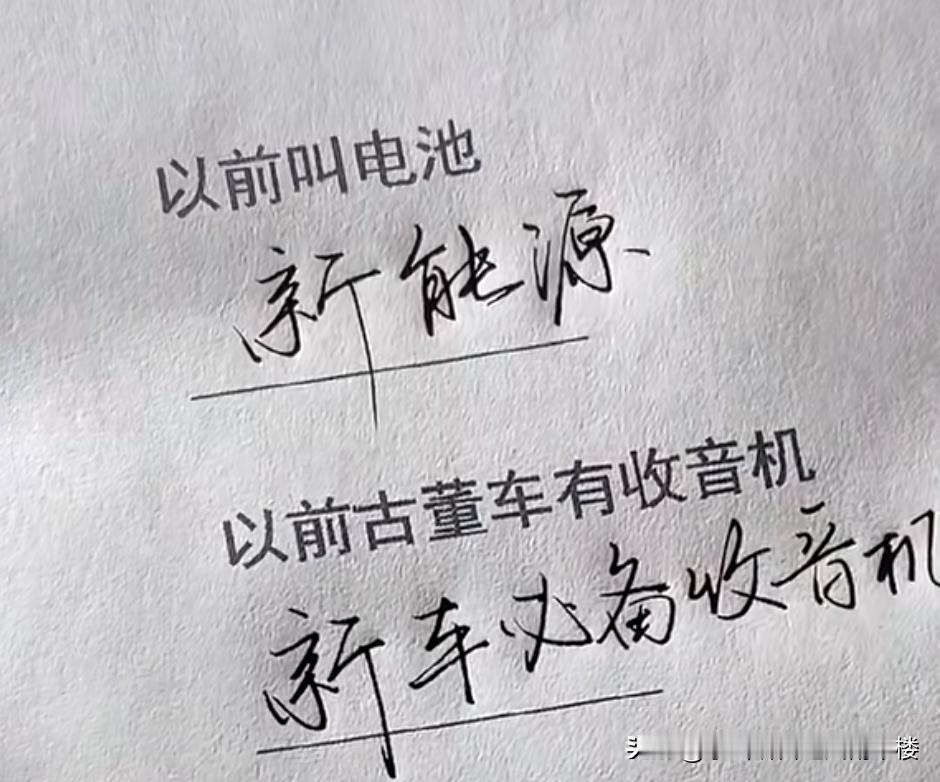 以前叫电池
新能源
以前古董车有收音机
新车必备收音机
楼